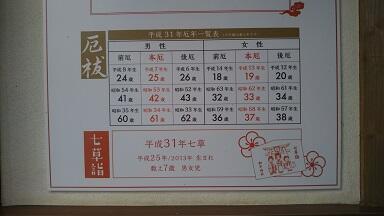 厄祓
平成31年厄年一覧表
男性 女性
前厄 本厄 後厄 前厄 本厄 後厄
平成8年生 平成7年生 平成6年生 平成14年生 平成13年生 平成12年生
24歳 25歳 26歳 18歳 19歳 20歳
昭和54年生 昭和53年生 昭和52年生 昭和63年生 昭和62年生 昭和61年生
41歳 42歳 43歳 32歳 33歳 34歳
昭和35年生 昭和34年生 昭和33年生 昭和59年生 昭和58年生 昭和57年生
60歳 61歳 62歳 36歳 37歳 38歳
七草詣
平成31年七草
平成25年/2013年 生まれ
数え7歳 男女児